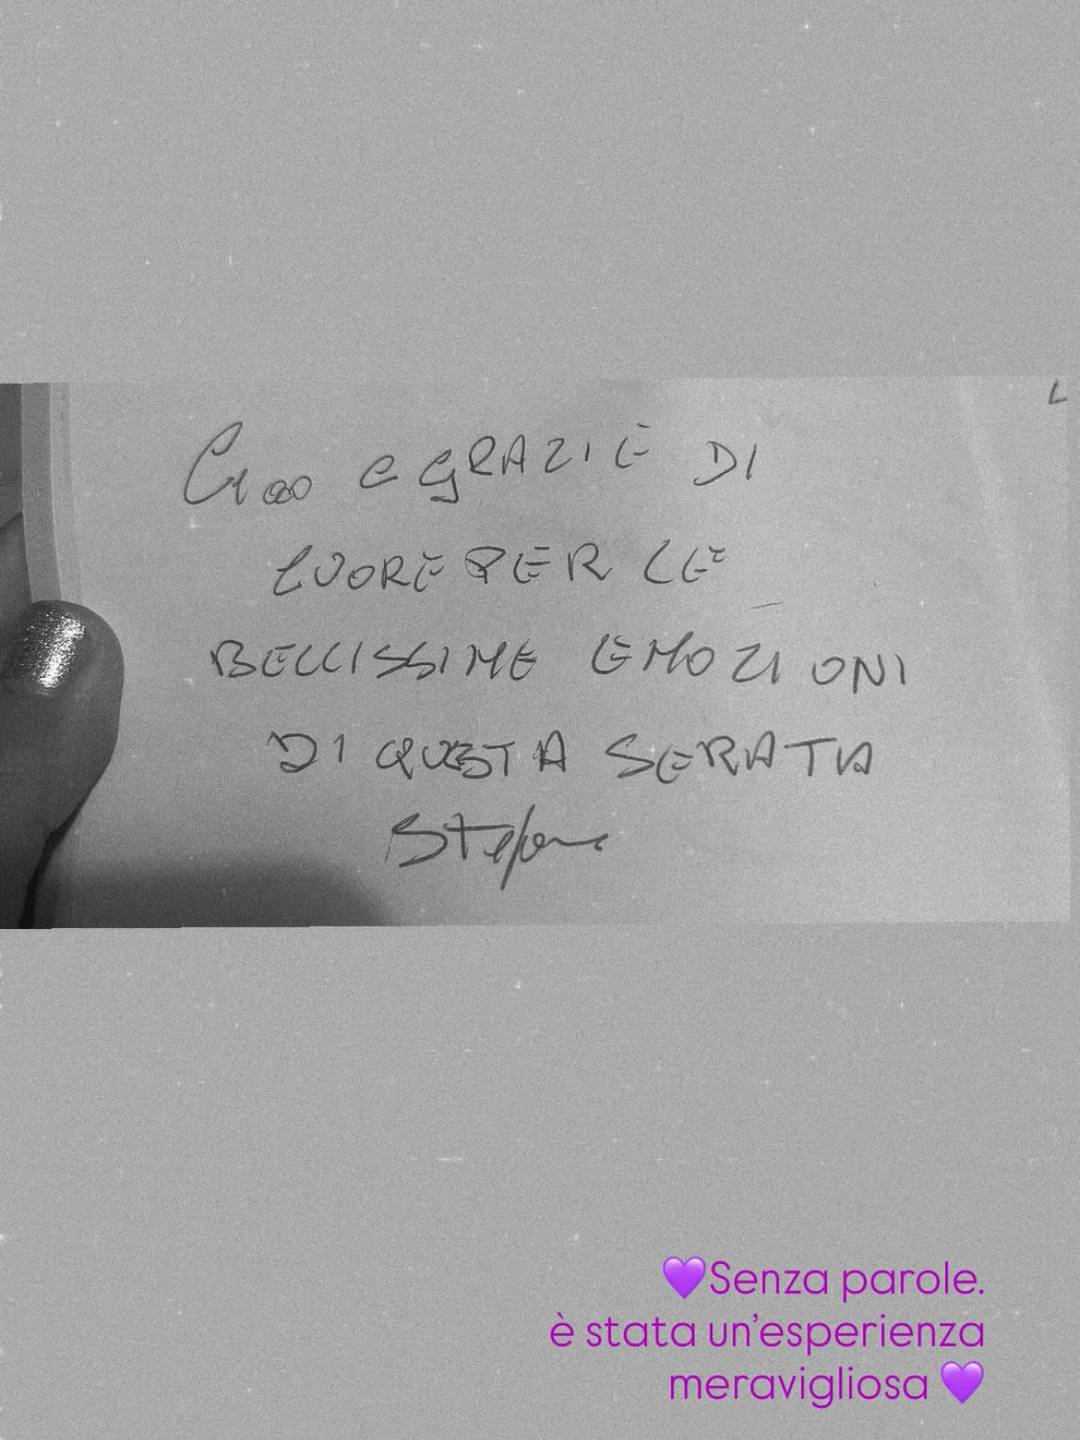 Ciao e GRAZIE DI
CUORE PER LE
BELLISSIME EMOZIONI
DI QUESTA SERATA
💜Senza parole.
è stata un'esperienza
meravigliosa 💜